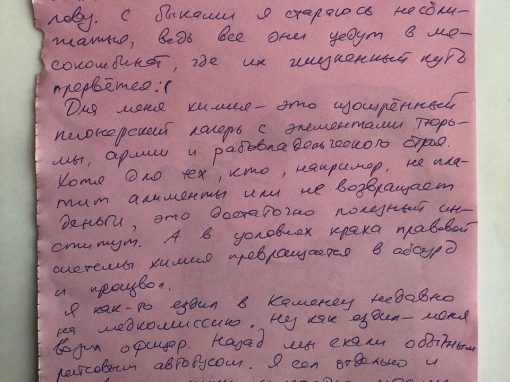 лову. С быками я стараюсь не сбли-
жаться, ведь все они уедут в мя-
сокомбинат, где их жизненный путь
прервётся :(
Для меня химия – это изощрённый
пионерский лагерь с элементами тюрь-
мы, армии и рабовладельческого строя.
Хотя для тех, кто, например, не пла-
тит алименты или не возвращает
деньги, это достаточно полезный ин-
ститут. А в условиях краха правовой
системы химия превращается в абсурд
и произвол.
Я как-то ездил в Каменец недавно
на медкомиссию. Ну как ездил – меня
возил офицер. Назад мы ехали обычным
рейсовым автобусом. Я сел отдельно и